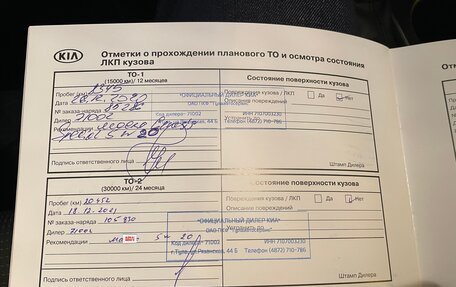 KIA
Отметки о прохождении планового ТО и осмотра состояния
ЛКП кузова
ТО-1
(15000 км)/ 12 месяцев
Состояние поверхности кузова
Пробег (км)
Повреждения кузова / ЛКП Да Нет
Дата
Описание повреждений
№ заказа-наряда
Дилер 71002
Рекомендации
5 w 20
"ОФИЦИАЛЬНЫЙ ДИЛЕР КИА"
ОАО ПКФ "Тулаавтосервис"
Код дилера - 71002 ИНН 7107003230
44 Б Телефон (4872) 710-786
Подпись ответственного лица
Штамп Дилера
ТО-2
(30000 км) / 24 месяца
Состояние поверхности кузова
Пробег (км) 20452
Повреждения кузова / ЛКП Да Нет
Дата 18.12.2021
Описание повреждений
№ заказа-наряда 105830
Дилер 71002
Рекомендации 5w20
"ОФИЦИАЛЬНЫЙ ДИЛЕР КИА"
ОАО ПКФ "Тулаавтосервис"
Код дилера - 71002 ИНН 7107003230
г.Тула, ул.Рязанская, 44 Б Телефон (4872) 710-786
Устранить до
Подпись ответственного лица
Штамп Дилера